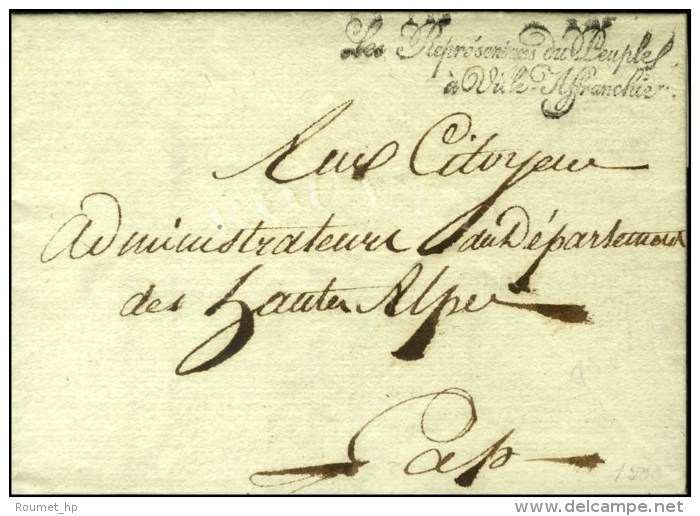 Les Représentans du Peuple
à Ville-Affranchie.
Aux Citoyens
Administrateurs du Département
des hautes Alpes
Gap
Roumet_hp
delcampe.net